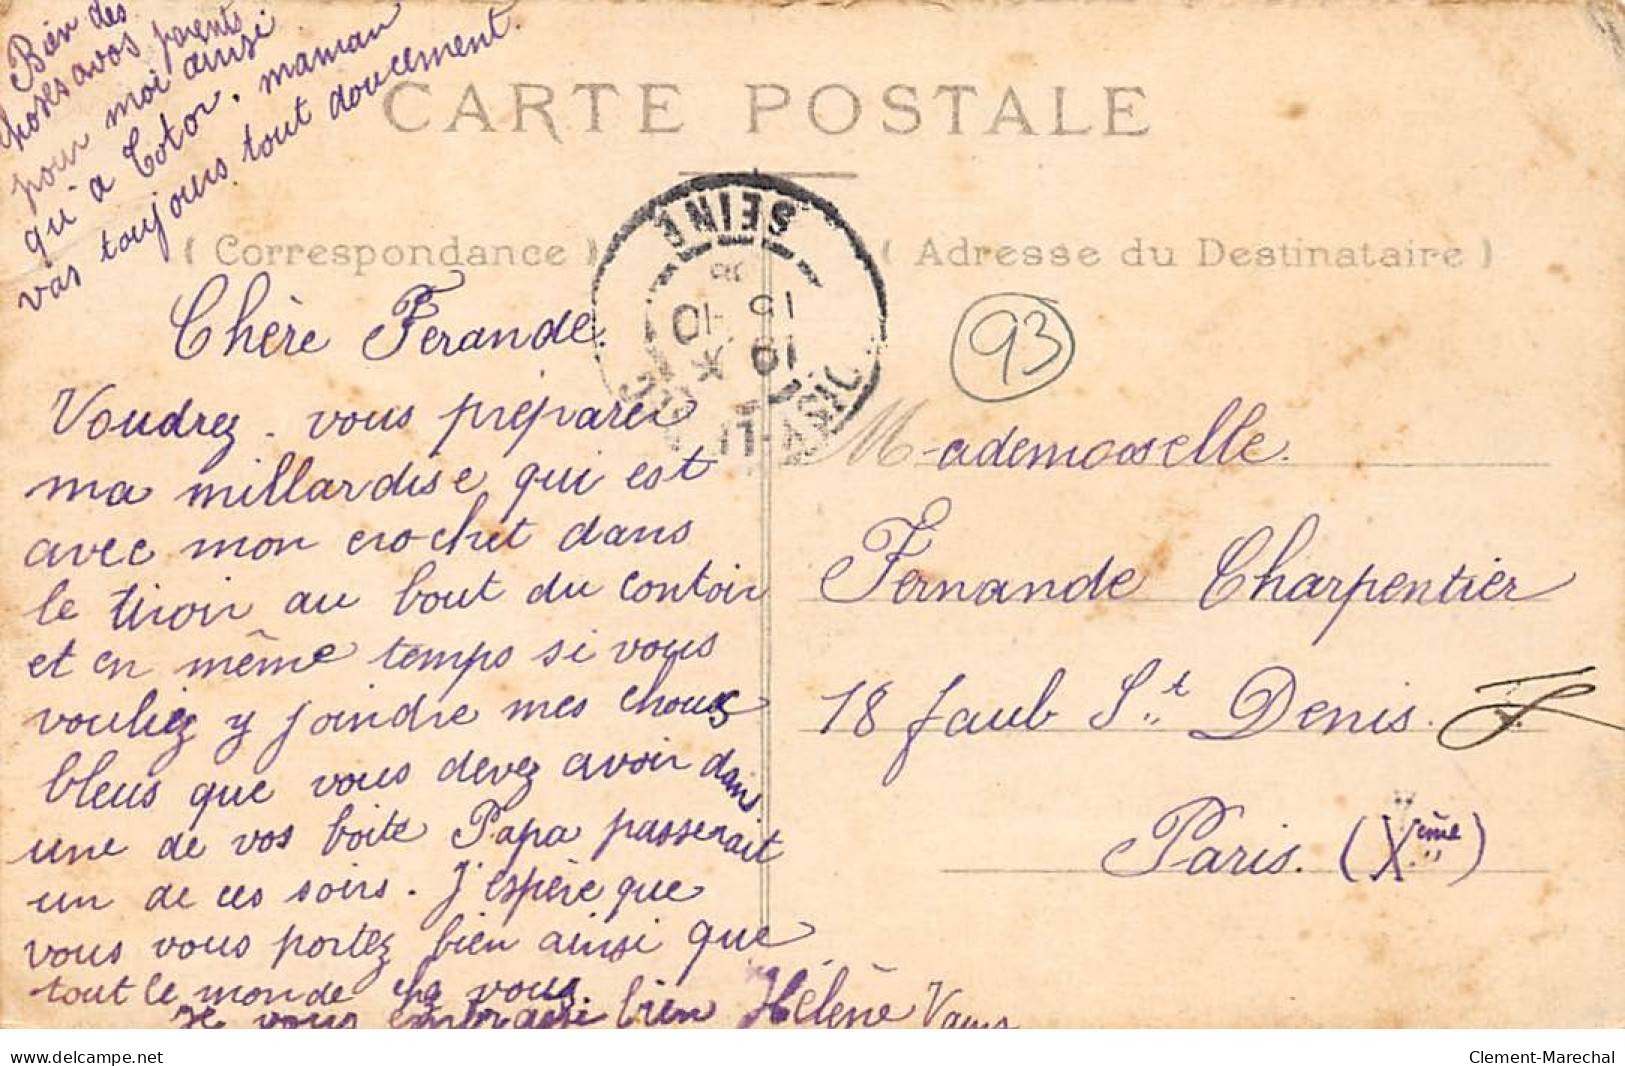 Bien des
choses a vos parents
pour moi ainsi
qu'a Totor. maman
vas toujours tout doucement.
CARTE POSTALE
(Correspondance)
SEINE
15-10
19 X
(Adresse du Destinataire)
93
Chère Ferande.
Voudrez vous préparer
ma millardise qui est
avec mon crochet dans
le tiroir au bout du contoir
et en même temps si vous
vouliez y joindre mes choux
bleus que vous devez avoir dans
une de vos boite Papa passerait
un de ces soirs. J'espère que
vous vous portez bien ainsi que
tout le monde chez vous.
Je vous embrasse bien Hélène
Mademoiselle.
Fernande Charpentier
18 faub St Denis.
Paris. (Xème)
www.delcampe.net
Clement-Marechal